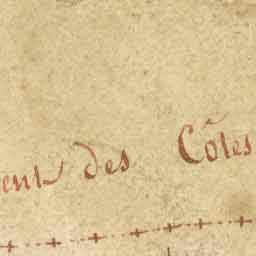 ent des Côtes